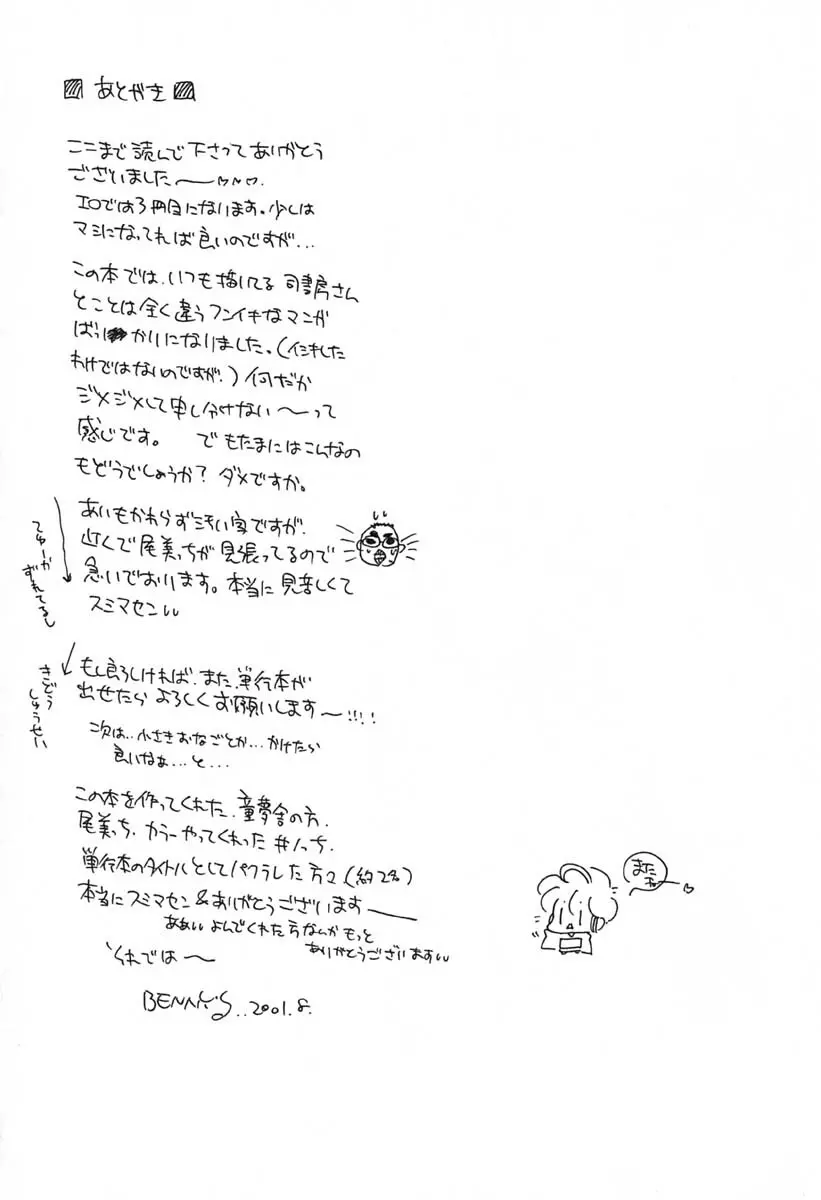 あとがき
ここまで読んで下さってありがとう
ございました〜♡♡♡.
エロでは3冊目になります。少しは
マシになってれば良いのですが...
この本では、いつも描いてる司書房さん
とことは全く違うフンイキなマンガ
ばっかりになりました。(イミした
わけではないのですが。)何だか
ジメジメして申し分けない〜って
感じです。 でもたまにはこんなの
もどうでしょうか? ダメですか。
あいもかわらず汚い字ですが、
近くで尾美っちが見張ってるので
急いでおります。本当に見苦しくて
スミマセン
てゆーか
ずれてるし
きどう
しゅうせい
もし良ろしければ、また、単行本が
出せたらよろしくお願いします〜!!!!
次は..小さきおなごとか...かけたら
良いなぁ...と...
この本を作ってくれた、童夢舎の方、
尾美っち、カラーやってくれた
単行本のタイトルとしてパクラレした方々(約2名)
本当にスミマセン&ありがとうございます——
ああいよんでくれた方なんかもっと
ありがとうございます
それでは〜
BENNY'S..2001.8.
また
ねー♡